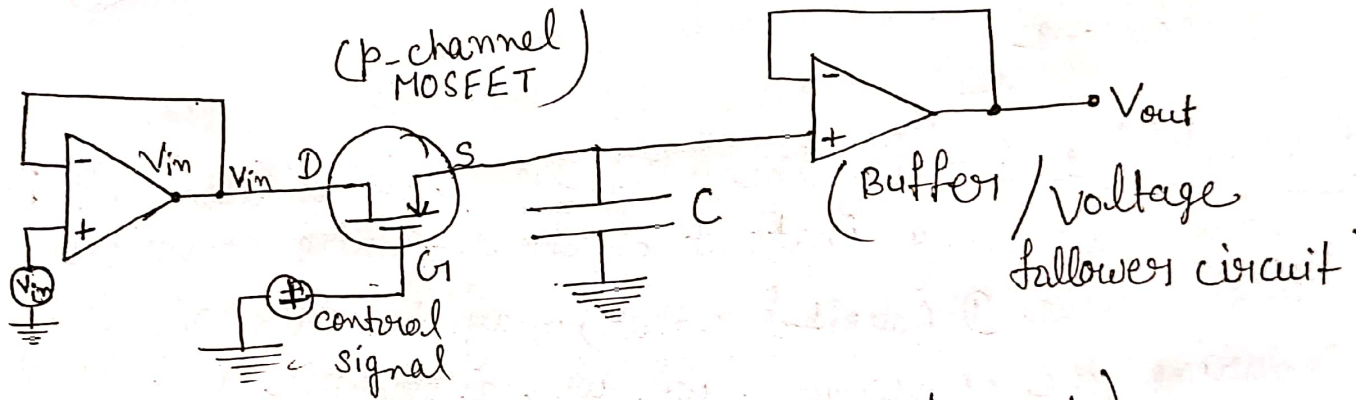 (p-channel
MOSFET)
-
+
Vin
Vin
Vin
D
S
G
+
control
signal
C
-
+
Vout
(Buffer/Voltage
follower circuit